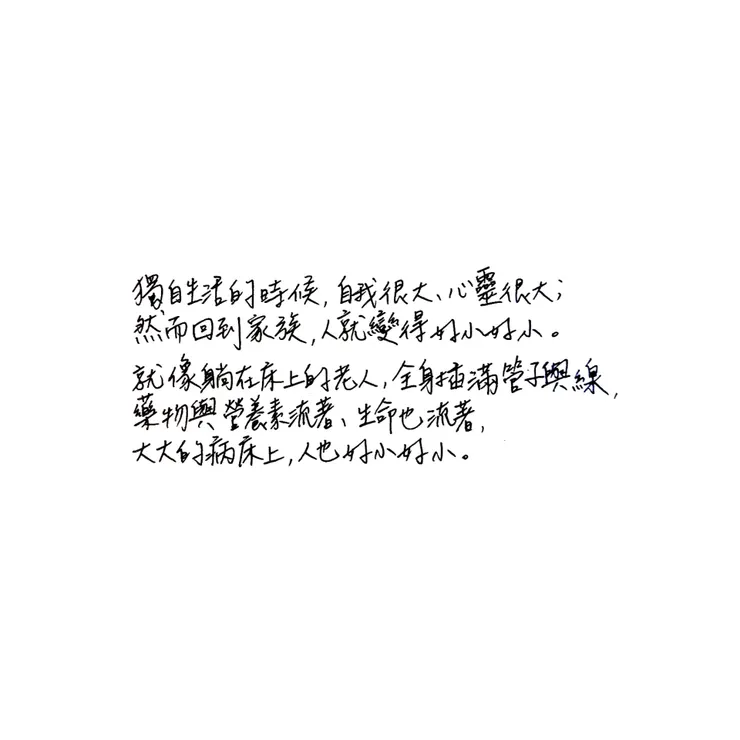 獨自生活的時候，自我很大、心靈很大；
然而回到家族，人就變得好小好小。
就像躺在床上的老人，全身插滿管子與線，
藥物與營養素流著、生命也流著，
大大的病床上，人也好小好小。